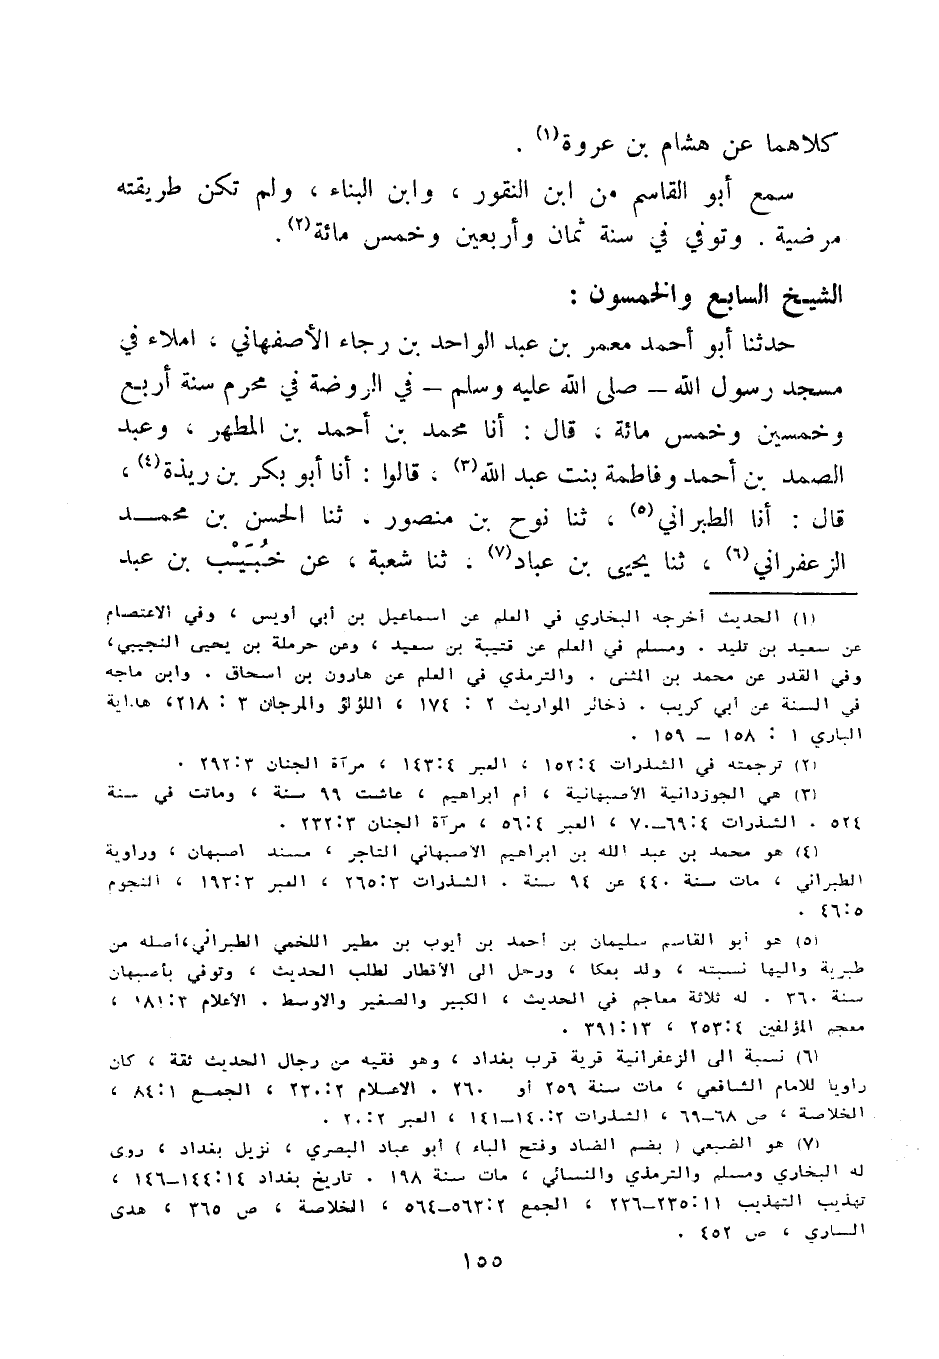 كلاهما عن هشام بن عروة(١) .
سمع أبو القاسم من ابن النقور ، وابن البناء ، ولم تكن طريقته
مرضية . وتوفي في سنة ثمان وأربعين وخمس مائة(٢).
الشيخ السابع والخمسون :
حدثنا أبو أحمد معمر بن عبد الواحد بن رجاء الأصفهاني ، املاء في
مسجد رسول الله – صلى الله عليه وسلم – في الروضة في محرم سنة أربع
وخمسين وخمس مائة ، قال : أنا محمد بن أحمد بن المطهر ، وعبد
الصمد بن أحمد وفاطمة بنت عبد الله(٣) ، قالوا : أنا أبو بكر بن ريذة(٤) ،
قال : أنا الطبراني(٥) ، ثنا نوح بن منصور . ثنا الحسن بن محمد
الزعفراني(٦) ، ثنا يحيى بن عباد(٧) . ثنا شعبة ، عن خُبَيْب بن عبد
(١) الحديث أخرجه البخاري في العلم عن اسماعيل بن أبي أويس ، وفي الاعتصام
عن سعيد بن تليد . ومسلم في العلم عن قتيبة بن سعيد ، وعن حرملة بن يحيى النجيبي،
وفي القدر عن محمد بن المثنى . والترمذي في العلم عن هارون بن اسحاق . وابن ماجه
في السنة عن أبي كريب . ذخائر المواريث ٢ : ١٧٤ ، اللؤلؤ والمرجان ٣ : ٢١٨، هداية
الباري ١ : ١٥٨ – ١٥٩ .
(٢) ترجمته في الشذرات ٤:١٥٢ ، العبر ٤:١٤٣ ، مرآة الجنان ٣:٢٩٢ .
(٣) هي الجوزدانية الأصبهانية ، أم ابراهيم ، عاشت ٩٩ سنة ، وماتت في سنة
٥٢٤ . الشذرات ٤:٦٩–٧٠ ، العبر ٤:٥٦ ، مرآة الجنان ٣:٢٣٢ .
(٤) هو محمد بن عبد الله بن ابراهيم الأصبهاني التاجر ، مسند اصبهان ، وراوية
الطبراني ، مات سنة ٤٤٠ عن ٩٤ سنة . الشذرات ٣:٢٦٥ ، العبر ٣:١٩٣ ، النجوم
٥:٤٦ .
(٥) هو أبو القاسم سليمان بن أحمد بن أيوب بن مطير اللخمي الطبراني،أصله من
طبرية واليها نسبته ، ولد بعكا ، ورحل الى الأقطار لطلب الحديث ، وتوفي بأصبهان
سنة ٣٦٠ . له ثلاثة معاجم في الحديث ، الكبير والصغير والاوسط . الأعلام ٣:١٨١ ،
معجم المؤلفين ٤:٢٥٣ ، ١٣:٣٩١ .
(٦) نسبة الى الزعفرانية قرية قرب بغداد ، وهو فقيه من رجال الحديث ثقة ، كان
راويا للامام الشافعي ، مات سنة ٢٥٩ أو ٢٦٠ . الاعلام ٢:٢٣٠ ، الجمع ١:٨٤ ،
الخلاصة ، ص ٦٨–٦٩ ، الشذرات ٢:١٤٠–١٤١ ، العبر ٢:٢٠ .
(٧) هو الضبعي ( بضم الضاد وفتح الباء ) أبو عباد البصري ، نزيل بغداد ، روى
له البخاري ومسلم والترمذي والنسائي ، مات سنة ١٩٨ . تاريخ بغداد ١٤:١٤٤–١٤٦ ،
تهذيب التهذيب ١١:٢٣٥–٢٣٦ ، الجمع ٢:٥٦٣–٥٦٤ ، الخلاصة ، ص ٣٦٥ ، هدى
الساري ، ص ٤٥٢ .
١٥٥